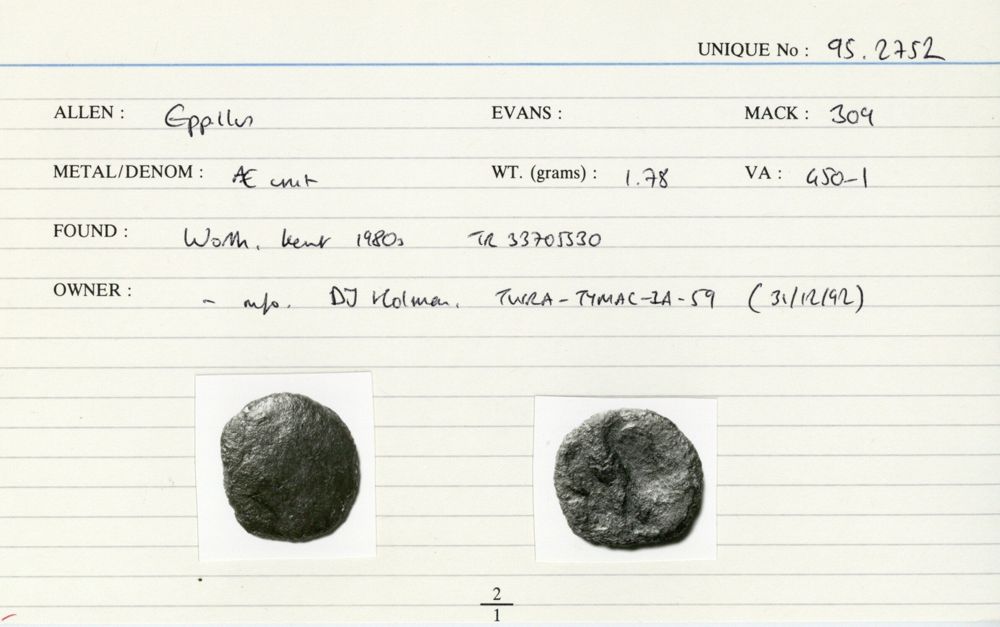 UNIQUE No : 95.2752
ALLEN : Eppillus EVANS : MACK : 309
METAL/DENOM : Æ unit WT. (grams) : 1.78 VA : 450-1
FOUND : Worth, Kent 1980s TR 33705530
OWNER : - info. DJ Holman. TWRA-TYMAC-IA-59 (31/12/92)
2
1